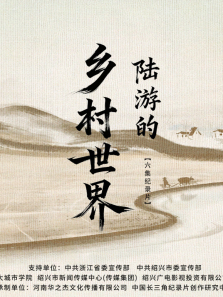 陆游的
乡村世界
【六集纪录片】
支持单位：中共浙江省委宣传部 中共绍兴市委宣传部
大城市学院 绍兴市新闻传媒中心(传媒集团) 绍兴广电影视投资有限公
承制单位：河南华之杰文化传播有限公司 中国长三角纪录片创作研究中